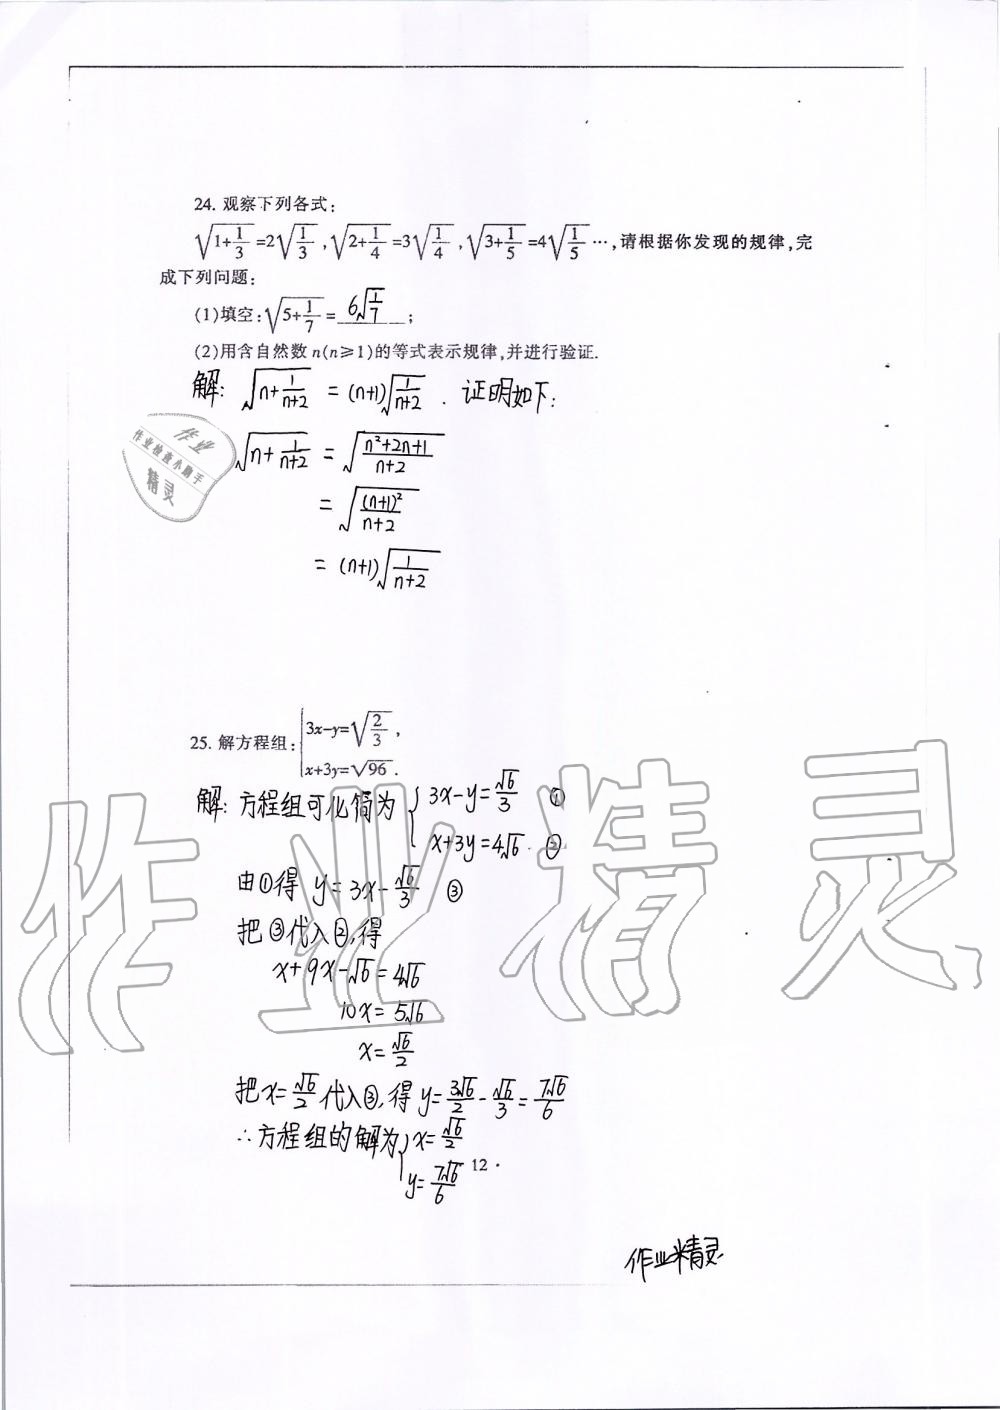 24. 观察下列各式:
√(1+1/3)=2√(1/3),√(2+1/4)=3√(1/4),√(3+1/5)=4√(1/5)…,请根据你发现的规律,完
成下列问题:
(1)填空:√(5+1/7)=6√(1/7);
(2)用含自然数n(n≥1)的等式表示规律,并进行验证.
解: √(n+1/(n+2)) = (n+1)√(1/(n+2)) . 证明如下:
√(n+1/(n+2)) = √((n²+2n+1)/(n+2))
= √((n+1)²/(n+2))
= (n+1)√(1/(n+2))
作业
作业检查小助手
精灵
25. 解方程组:{3x-y=√(2/3),
x+3y=√96.
解: 方程组可化简为{3x-y=√6/3 ①
x+3y=4√6. ②
由①得 y=3x-√6/3 ③
把③代入②,得
x+9x-√6=4√6
10x=5√6
x=√6/2
把x=√6/2代入③,得y=3√6/2-√6/3=7√6/6
∴方程组的解为{x=√6/2
y=7√6/6
12·
作业精灵
作业精灵